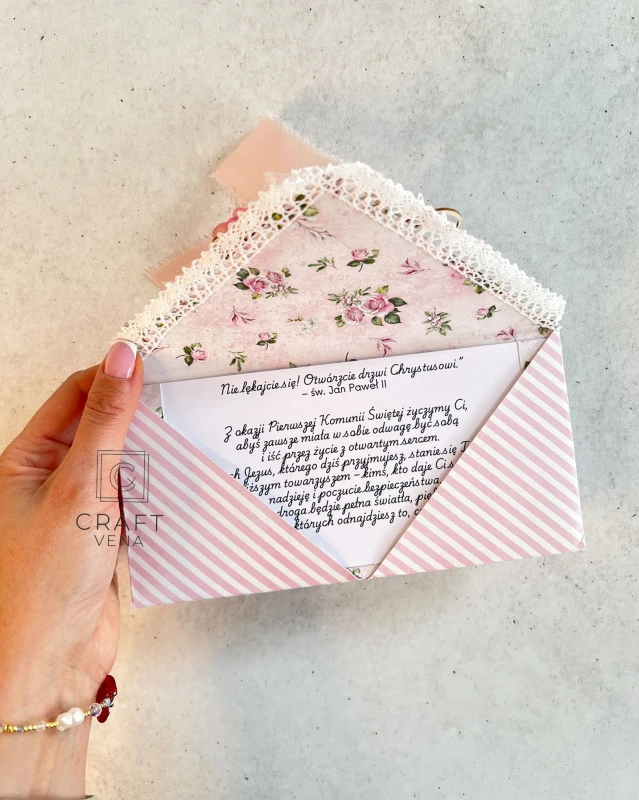 Nie lękajcie się! Otwórzcie drzwi Chrystusowi."
– św. Jan Paweł II
Z okazji Pierwszej Komunii Świętej życzymy Ci,
abyś zawsze miała w sobie odwagę być sobą
i iść przez życie z otwartym sercem.
Jezus, którego dziś przyjmujesz, stanie się
towarzyszem – kimś, kto daje Ci
nadzieję i poczucie bezpieczeństwa
droga będzie pełna światła,
których odnajdziesz to,
CRAFT
VENA